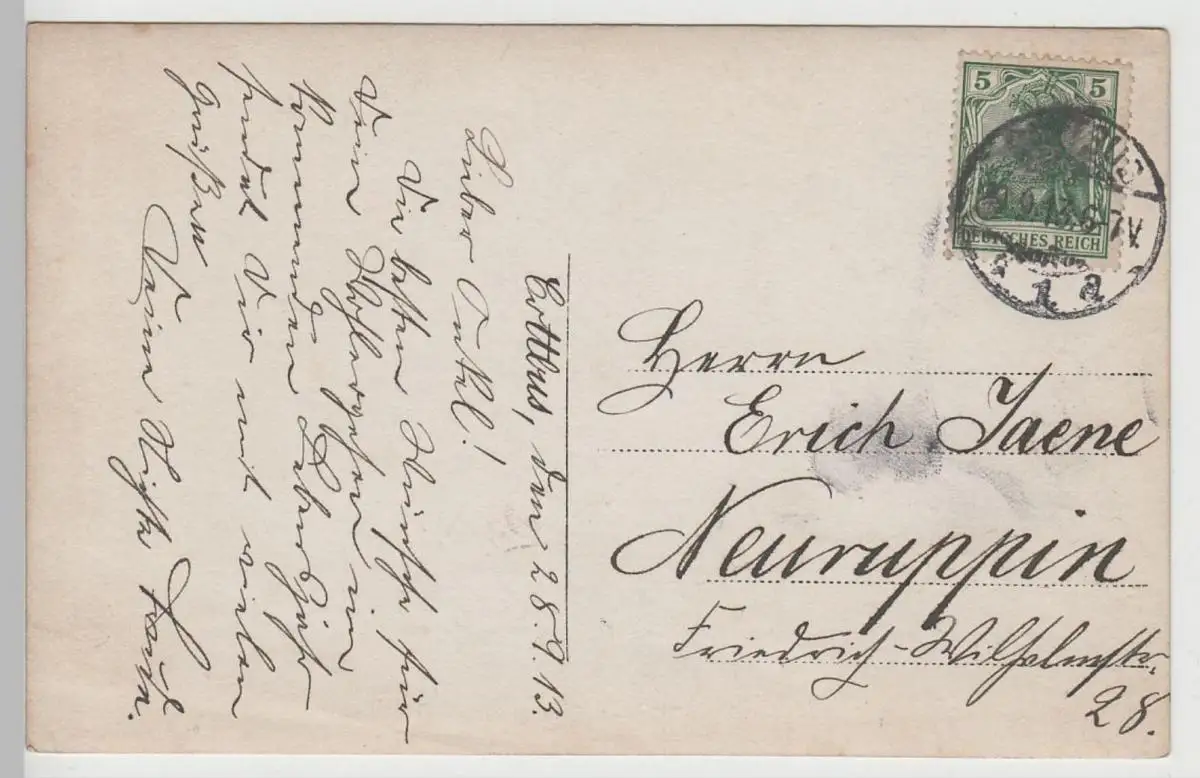 Cottbus, den 28.9.13.
Lieber Onkel!
Die besten Wünsche für
Dein Wohlergehen im
kommenden Lebensjahr
sendet Dir mit vielen
Grüßen
Deine Nichte
5 5
DEUTSCHES REICH
1 a
Herrn
Erich Jaene
Neuruppin
Friedrich-Wilhelmstr.
28.